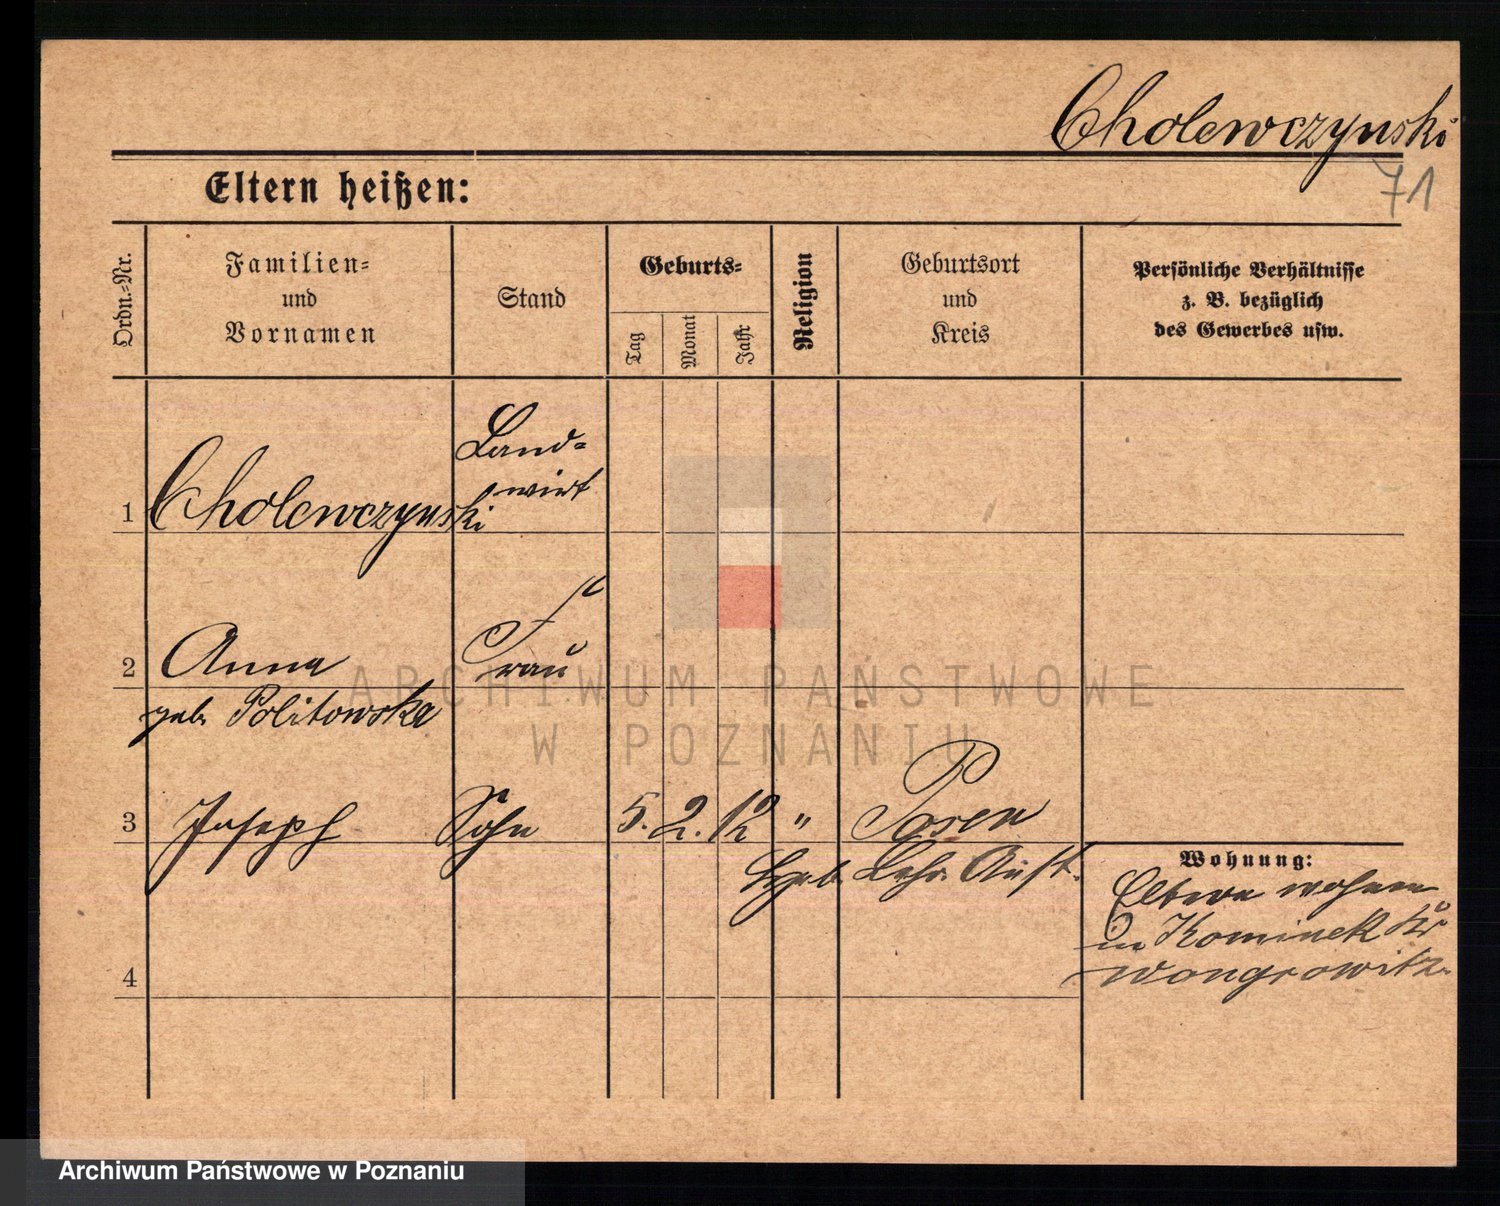 Cholewczynski
71
Eltern heißen:
Ordn.-Nr.
Familien-
und
Vornamen
Stand
Geburts-
Tag
Monat
Jahr
Religion
Geburtsort
und
Kreis
Persönliche Verhältnisse
z. B. bezüglich
des Gewerbes usw.
1 Cholewczynski Land-
wirt
2 Anna Frau
geb. Politowska
3 Joseph Sohn 5. 2. 12 " Posen
Hgeb. Lehr. Anst.
Wohnung:
Eltern wohnen
in Kominek Kr
Wongrowitz.
4
ARCHIWUM PAŃSTWOWE
W POZNANIU
Archiwum Państwowe w Poznaniu